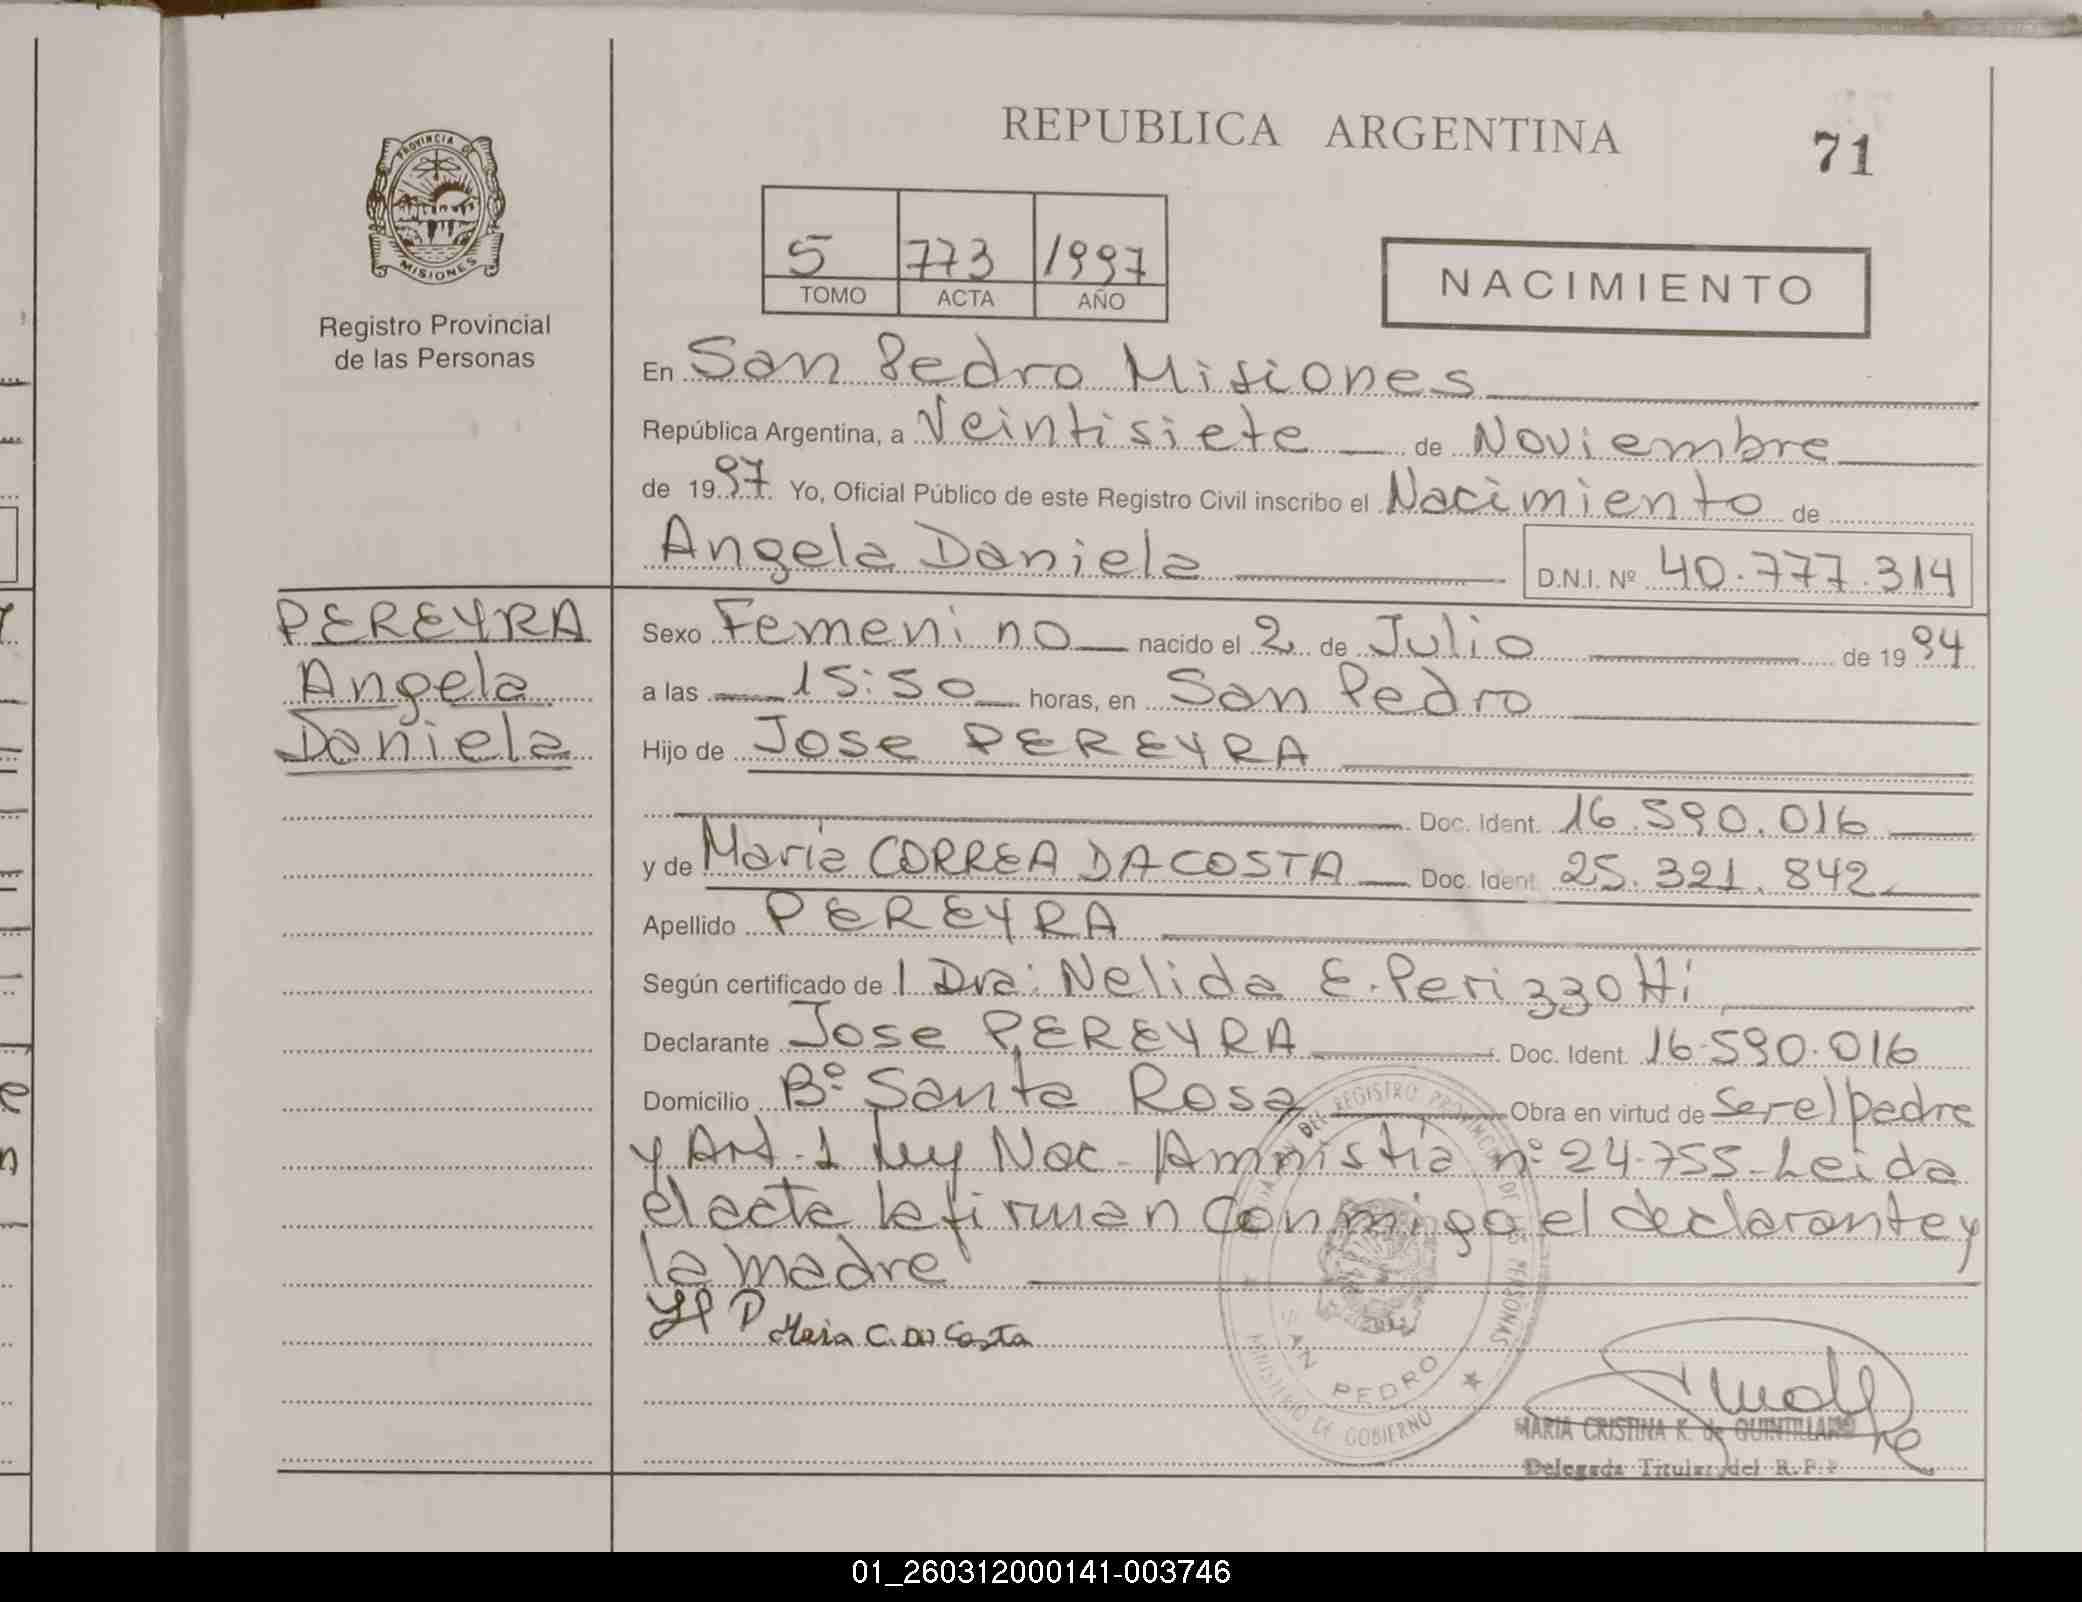 REPUBLICA ARGENTINA
71
PROVINCIA DE
MISIONES
Registro Provincial
de las Personas
5 773 1997
TOMO ACTA AÑO
NACIMIENTO
En San Pedro Misiones
República Argentina, a Veintisiete de Noviembre
de 1997 Yo, Oficial Público de este Registro Civil inscribo el Nacimiento de
Angela Daniela D.N.I. Nº 40.777.314
PEREYRA
Angela
Daniela
Sexo Femenino nacido el 2 de Julio de 1994
a las 15:50 horas, en San Pedro
Hijo de Jose PEREYRA
Doc. Ident. 16.590.016
y de Maria CORREA DACOSTA Doc. Ident. 25.321.842
Apellido PEREYRA
Según certificado de Dra: Nelida E. Perizzotti
Declarante Jose PEREYRA Doc. Ident. 16.590.016
Domicilio Bº Santa Rosa Obra en virtud de ser el padre
y Art. 1 Ley Nac. Amnistia nº 24.755 Leida
el acta la firman conmigo el declarante y
la madre
Maria C. Da Costa
SAN PEDRO
MINISTERIO DE GOBIERNO
MARIA CRISTINA K. de QUINTILLAN
Delegada Titular del R.P.P
01_260312000141-003746